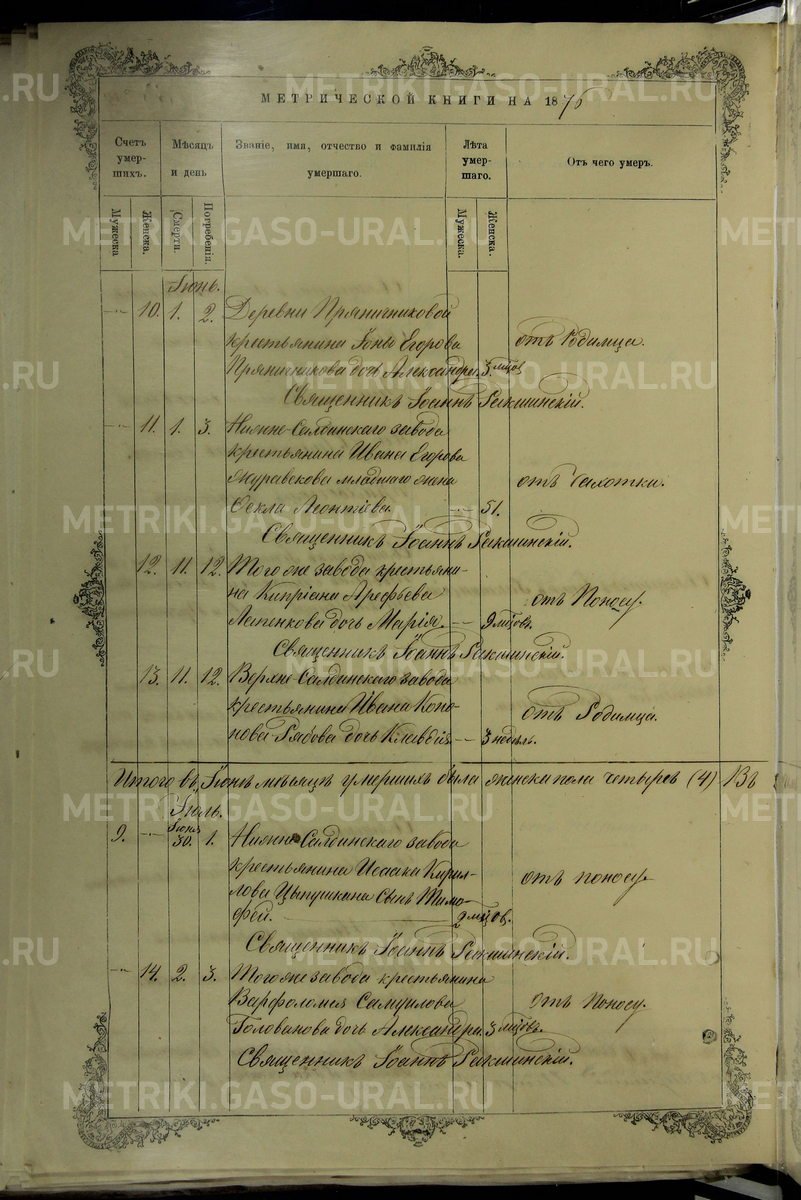 МЕТРИЧЕСКОЙ КНИГИ НА 1876
Счетъ умер-шихъ.
Мѣсяцъ и день
Званіе, имя, отчество и фамилія умершаго.
Лѣта умер-шаго.
Отъ чего умеръ.
Мужеска
Женска.
Смерти.
Погребенія.
Мужеска.
Женска.
Іюнь.
10. 1. 2. Деревни Пряничниковой
крестьянина Іоны Егорова отъ Родимца.
Пряничникова дочь Александра. 3 мцов
Священникъ Іоаннъ
11. 1. 3. Нижне-Салдинскаго завода
крестьянина Ивана Егорова
младшаго жена отъ Чахотки.
Ѳекла Леонтіева 51.
Священникъ Іоаннъ
12. 11. 12. Того же завода крестьяни-
на Кипріана Арефьева отъ Поносу.
дочь Марія. 9 мцовъ.
Священникъ Іоаннъ
13. 11. 12. Верхне-Салдинскаго завода
крестьянина Ивана Коно- отъ Родимца.
нова Рябова дочь Клавдія 3 недѣль.
Итого въ Іюнѣ мѣсяцѣ умершихъ было женска пола четыре (4)
Іюль.
9. Іюня 30. 1. Нижне-Салдинскаго завода
крестьянина Исаака Кирил- отъ поносу
лова Цыпушкина сынъ Тимо-
фей. 2 мцов.
Священникъ Іоаннъ
14. 2. 3. Того же завода крестьянина
Варфоломея Самуилова отъ Поносу.
Голованова дочь Александра. 3 мцовъ.
Священникъ Іоаннъ
METRIKI.GASO-URAL.RU